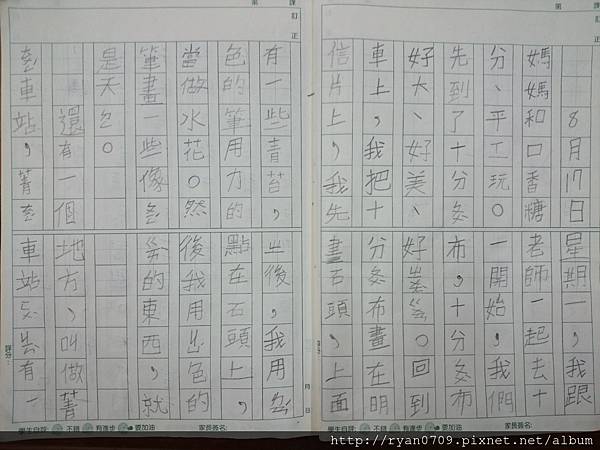 8月17日星期一，我跟
媽媽和口香糖老師一起去十
分、平玩。一開始，我們
先到了十分布，十分布
好大、好美、好。回到
車上，我把十分布畫在明
信片上，我先畫石頭，上面
有一些青苔，ㄓ後，我用
色的筆用力的點在石頭上，
當做水花。然後我用色的
筆畫一些像的東西，就
是天。
還有一個地方，叫做菁
車站，菁車站有一
第 課
訂正
第 課
訂正
評分：
月 日
學生自評： 不錯 有進步 要加油 家長簽名：
學生自評： 不錯 有進步 要加油 家長簽名：
http://ryan0709.pixnet.net/album